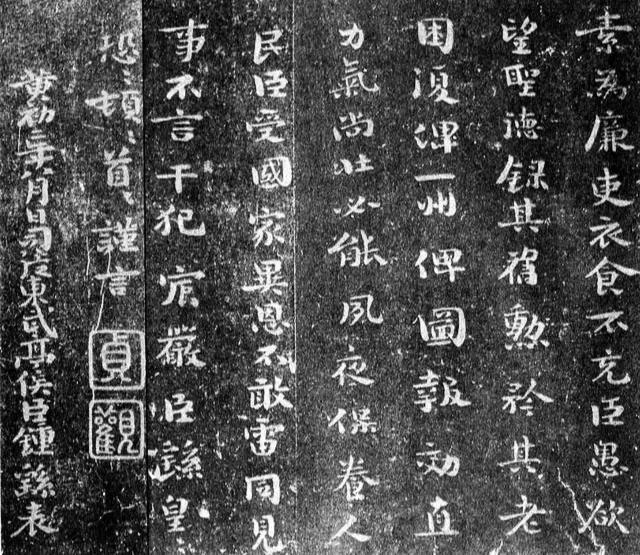 素為廉吏衣食不充臣愚欲
望聖德錄其舊勲矜其老
困復俾一州俾圖報効直
力氣尚壯必能夙夜保養人
民臣受國家異恩不敢雷同見
事不言干犯宸嚴臣繇皇〻
恐〻頓〻首〻謹言
貞觀
黃初二年八月日司徒東武亭侯臣鍾繇表